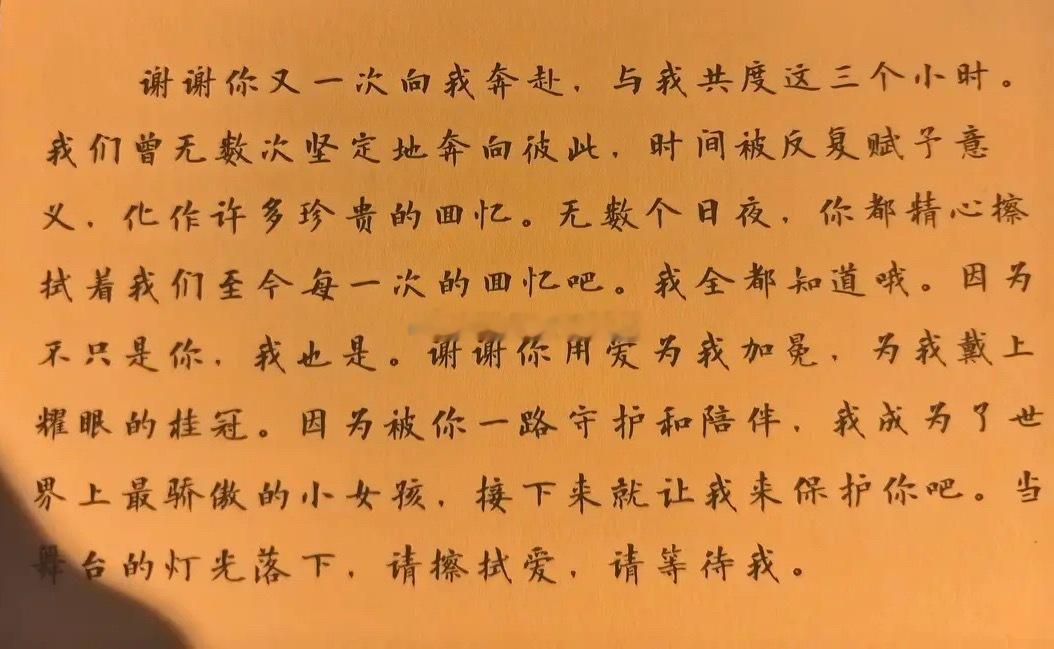 谢谢你又一次向我奔赴，与我共度这三个小时。
我们曾无数次坚定地奔向彼此，时间被反复赋予意
义，化作许多珍贵的回忆。无数个日夜，你都精心擦
拭着我们至今每一次的回忆吧。我全都知道哦。因为
不只是你，我也是。谢谢你用爱为我加冕，为我戴上
耀眼的桂冠。因为被你一路守护和陪伴，我成为了世
界上最骄傲的小女孩，接下来就让我来保护你吧。当
舞台的灯光落下，请擦拭爱，请等待我。